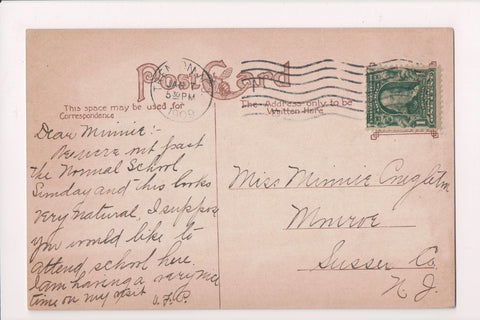 Post Card
TRENTON, N.J.
5 30 PM
1908
This space may be used for
Correspondence
The Address only to be
Written Here
Dear Minnie:-
We were out past
the Normal School
Sunday and this looks
very natural, I suppose
you would like to
attend school here,
I am having a very nice
time on my visit
J.F.P.
Miss Minnie
Monroe
Sussex Co
N.J.